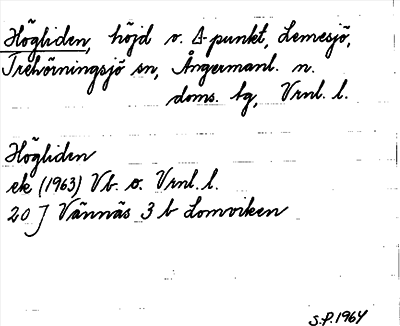 Högliden, höjd o. Δ-punkt, Lemesjö,
Trehörningsjö sn, Ångermanl. n.
doms. tg, Vrnl. l.
Högliden
ek (1963) Vb. o. Vrnl. l.
20 J Vännäs 3 b Lomviken
S.P. 1964